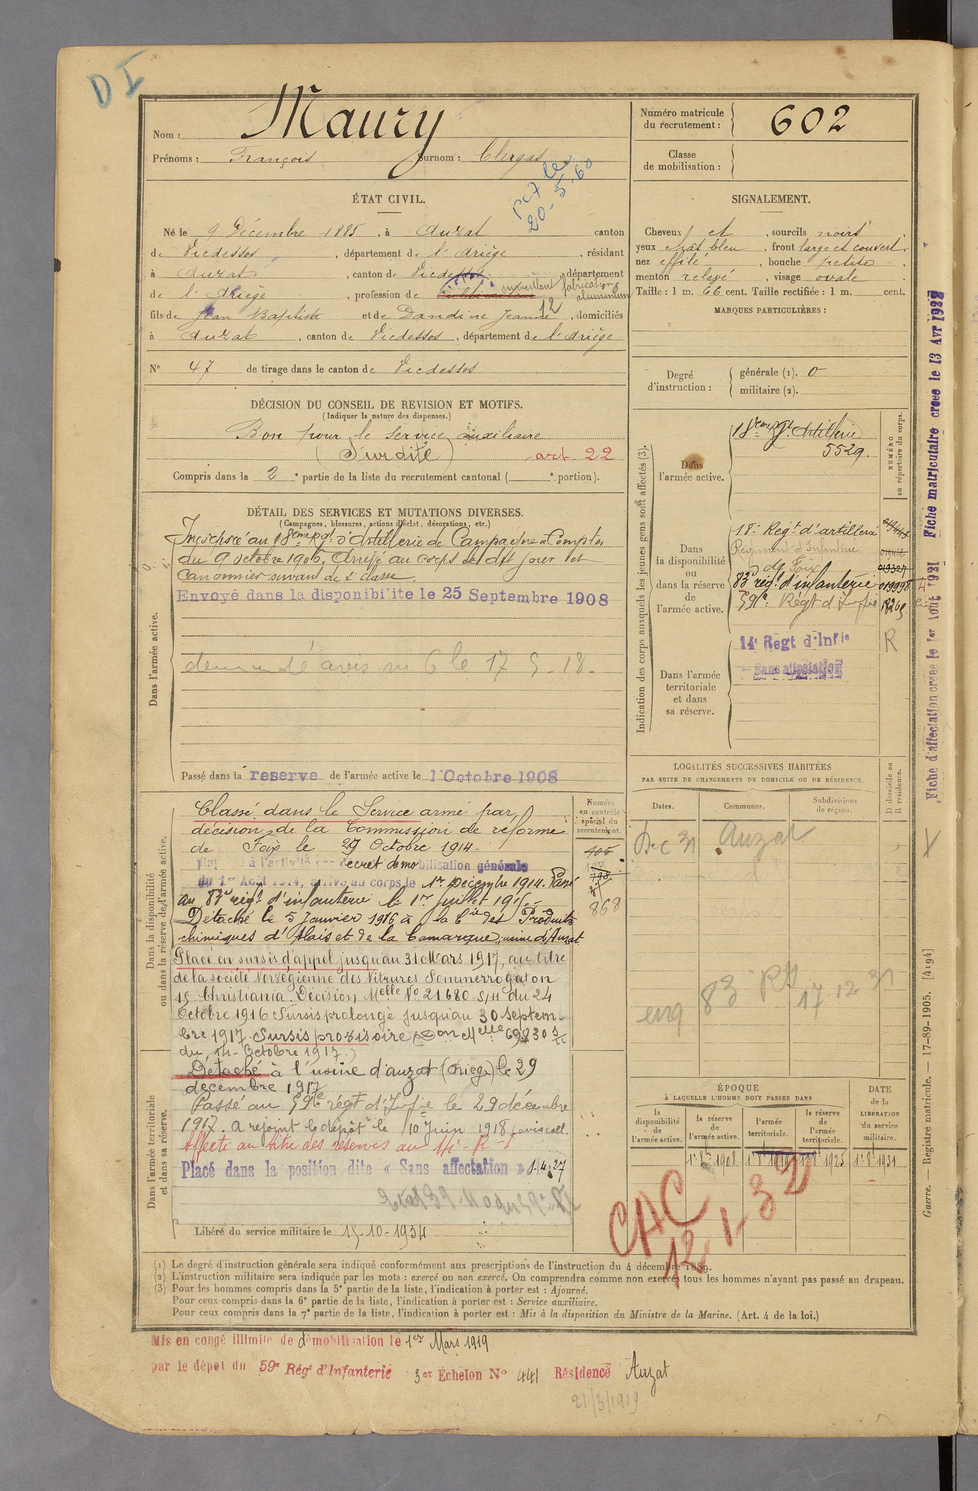 D I
Nom : Maury
Prénoms : François Surnom : Clergat
Numéro matricule du recrutement : 602
Classe de mobilisation :
ÉTAT CIVIL.
Né le 9 Décembre 1885, à Auzat canton
de Vicdessos, département de l'Ariège, résidant
à Auzat, canton de Vicdessos, département
de l'Ariège, profession de surveillant fabrication aluminium
fils de Jean Baptiste et de Dandine Jeanne, domiciliés
à Auzat, canton de Vicdessos, département de l'Ariège
20-5-60
12
N° 47 de tirage dans le canton de Vicdessos
SIGNALEMENT.
Cheveux et, sourcils noirs
yeux bleu, front large et couvert
nez effilé, bouche petite
menton relevé, visage ovale
Taille : 1 m. 66 cent. Taille rectifiée : 1 m. cent.
MARQUES PARTICULIÈRES :
Degré d'instruction : générale (1). 0
militaire (2).
DÉCISION DU CONSEIL DE REVISION ET MOTIFS.
(Indiquer la nature des dispenses.)
Bon pour le service auxiliaire
(Surdité) art. 22
Compris dans la 2e partie de la liste du recrutement cantonal ( e portion).
DÉTAIL DES SERVICES ET MUTATIONS DIVERSES.
(Campagnes, blessures, actions d'éclat, décorations, etc.)
Dans l'armée active.
Incorporé au 18eme Rgt d'Artillerie de Campagne à Compter
du 9 octobre 1906. Arrivé au corps le dit jour et
Canonnier servant de 2e classe.
Envoyé dans la disponibilite le 25 Septembre 1908
le 17 5-18.
Passé dans la reserve de l'armée active le 1 Octobre 1908
Indication des corps auxquels les jeunes gens sont affectés (3).
NUMÉRO au répertoire du corps.
Dans l'armée active.
18eme Rgt Artillerie
5529.
Dans la disponibilité ou dans la réserve de l'armée active.
18e Regt d'artillerie
Régiment d'Infanterie
de Foix
83e régt d'infanterie
59e Régt d'Infie
Dans l'armée territoriale et dans sa réserve.
14e Regt d'Infie
Sans affectation
R
LOCALITÉS SUCCESSIVES HABITÉES
PAR SUITE DE CHANGEMENTS DE DOMICILE OU DE RÉSIDENCE.
Dates. Communes. Subdivisions de région. D domicile ou R résidence.
Dec 31 Auzat
83 RI 17.12 31
Dans la disponibilité ou dans la réserve de l'armée active.
Numéro au contrôle spécial du recrutement.
868
Classé dans le Service armé par
décision de la Commission de réforme
de Foix le 29 Octobre 1914.
Rappelé à l'activité par decret de mobilisation générale
du 1er Août 1914, arrivé au corps le 1er Décembre 1914. Passé
au 83e régt d'infanterie le 1er Juillet 1915.
Détaché le 5 Janvier 1916 à la Cie des Produits
chimiques d'Alais et de la Camargue, usine d'Auzat
Placé en sursis d'appel jusqu'au 31 Mars 1917, au titre
de la société Norvégienne des Nitrures Sommerrogaton
15 Christiania. Décision Melle No 21680 du 24
Octobre 1916 Sursis prolongé jusqu'au 30 septem-
bre 1917. Sursis provisoire
du 14 Octobre 1917.)
Détaché à l'usine d'auzat (Ariège) le 29
décembre 1917
Passé au 59e régt d'Infie le 29 décembre
1917. a rejoint le dépôt le 10 Juin 1918
Affecté au titre des réserves au 14e R.I
Placé dans la position dite « Sans affectation » 1.4.27
Dans l'armée territoriale et dans sa réserve.
Libéré du service militaire le 15-10-1934
ÉPOQUE
À LAQUELLE L'HOMME DOIT PASSER DANS
la disponibilité de l'armée active. la réserve de l'armée active. l'armée territoriale. la réserve de l'armée territoriale.
DATE de la LIBÉRATION du service militaire.
CAC
12-1-32
(1) Le degré d'instruction générale sera indiqué conformément aux prescriptions de l'instruction du 4 décembre 1889.
(2) L'instruction militaire sera indiquée par les mots : exercé ou non exercé. On comprendra comme non exercés tous les hommes n'ayant pas passé au drapeau.
(3) Pour les hommes compris dans la 5e partie de la liste, l'indication à porter est : Ajourné.
Pour ceux compris dans la 6e partie de la liste, l'indication à porter est : Service auxiliaire.
Pour ceux compris dans la 7e partie de la liste, l'indication à porter est : Mis à la disposition du Ministre de la Marine. (Art. 4 de la loi.)
Mis en congé illimité de démobilisation le 1er Mars 1919
par le dépot du 59e Rég d'Infanterie 3er Echelon No 441 Résidence Auzat
21/3/1919
Fiche d'affectation creee le 1er Aout 1921 Fiche matriculaire creee le 13 Avr 1922
Guerre. — Registre matricule. — 17-89-1905. [4194]